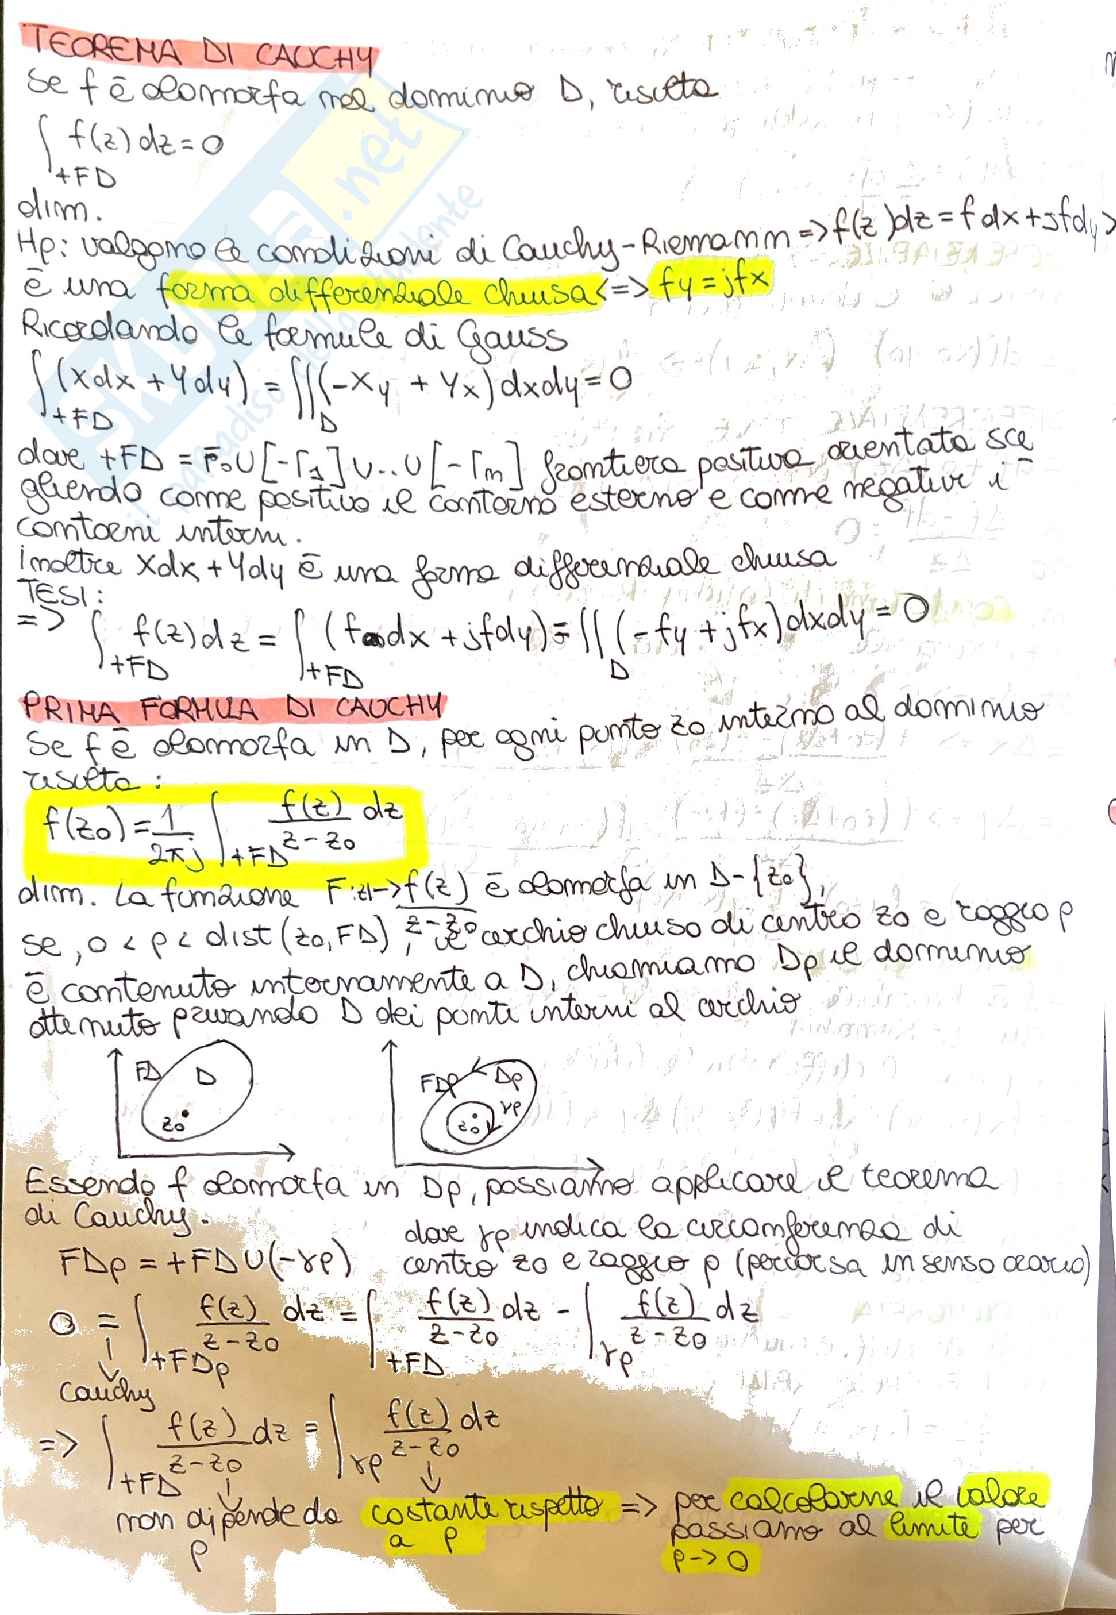 TEOREMA DI CAUCHY
Se f è olomorfa nel dominio D, risulta
∫+FD f(z) dz = 0
dim.
Hp: valgono le condizioni di Cauchy-Riemann => f(z)dz = fdx + jfdy >
è una forma differenziale chiusa <=> fy = jfx
Ricordando le formule di Gauss
∫+FD (Xdx + Ydy) = ∬D (-Xy + Yx) dxdy = 0
dove +FD = Γo ∪ [-Γ1] ∪ .. ∪ [-Γm] frontiera positiva orientata sce
gliendo come positivo il contorno esterno e come negativi i
contorni interni.
inoltre Xdx + Ydy è una forma differenziale chiusa
TESI:
=> ∫+FD f(z) dz = ∫+FD (f dx + jfdy) = ∬D (-fy + jfx) dxdy = 0
PRIMA FORMULA DI CAUCHY
Se f è olomorfa in D, per ogni punto zo interno al dominio
risulta :
f(zo) = 1/2πj ∫+FD f(z)/z-zo dz
dim. La funzione F: z|-> f(z)/z-zo è olomorfa in D-{zo},
se, 0 < ρ < dist (zo, FD), il cerchio chiuso di centro zo e raggio ρ
è contenuto internamente a D, chiamiamo Dρ il dominio
ottenuto privando D dei punti interni al cerchio
FD D zo
FDρ Dρ γρ zo
Essendo f olomorfa in Dρ, possiamo applicare il teorema
di Cauchy.
FDρ = +FD ∪ (-γρ)
dove γρ indica la circonferenza di
centro zo e raggio ρ (percorsa in senso orario)
0 = ∫+FDρ f(z)/z-zo dz = ∫+FD f(z)/z-zo dz - ∫γρ f(z)/z-zo dz
Cauchy
=> ∫+FD f(z)/z-zo dz = ∫γρ f(z)/z-zo dz
non dipende da ρ
costante rispetto a ρ
=> per calcolarne il valore
passiamo al limite per
ρ -> 0
SKUOLA.net